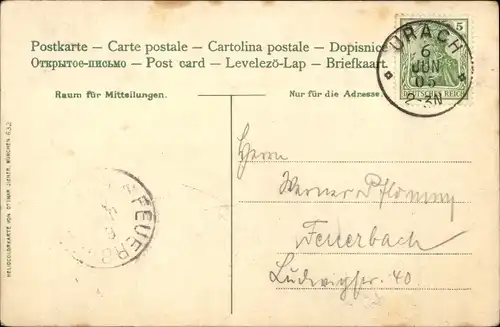 Postkarte – Carte postale – Cartolina postale – Dopisnice
Открытое-письмо – Post card – Levelezö-Lap – Briefkaart.
5
DEUTSCHES REICH
URACH
6
JUN
05
2-3N
Raum für Mitteilungen.
Nur für die Adresse.
Herrn
Werner Pflomm
Feuerbach
Ludwigstr. 40
FEUERB
HELIOCOLORKARTE VON OTTMAR ZIEHER, MÜNCHEN 632